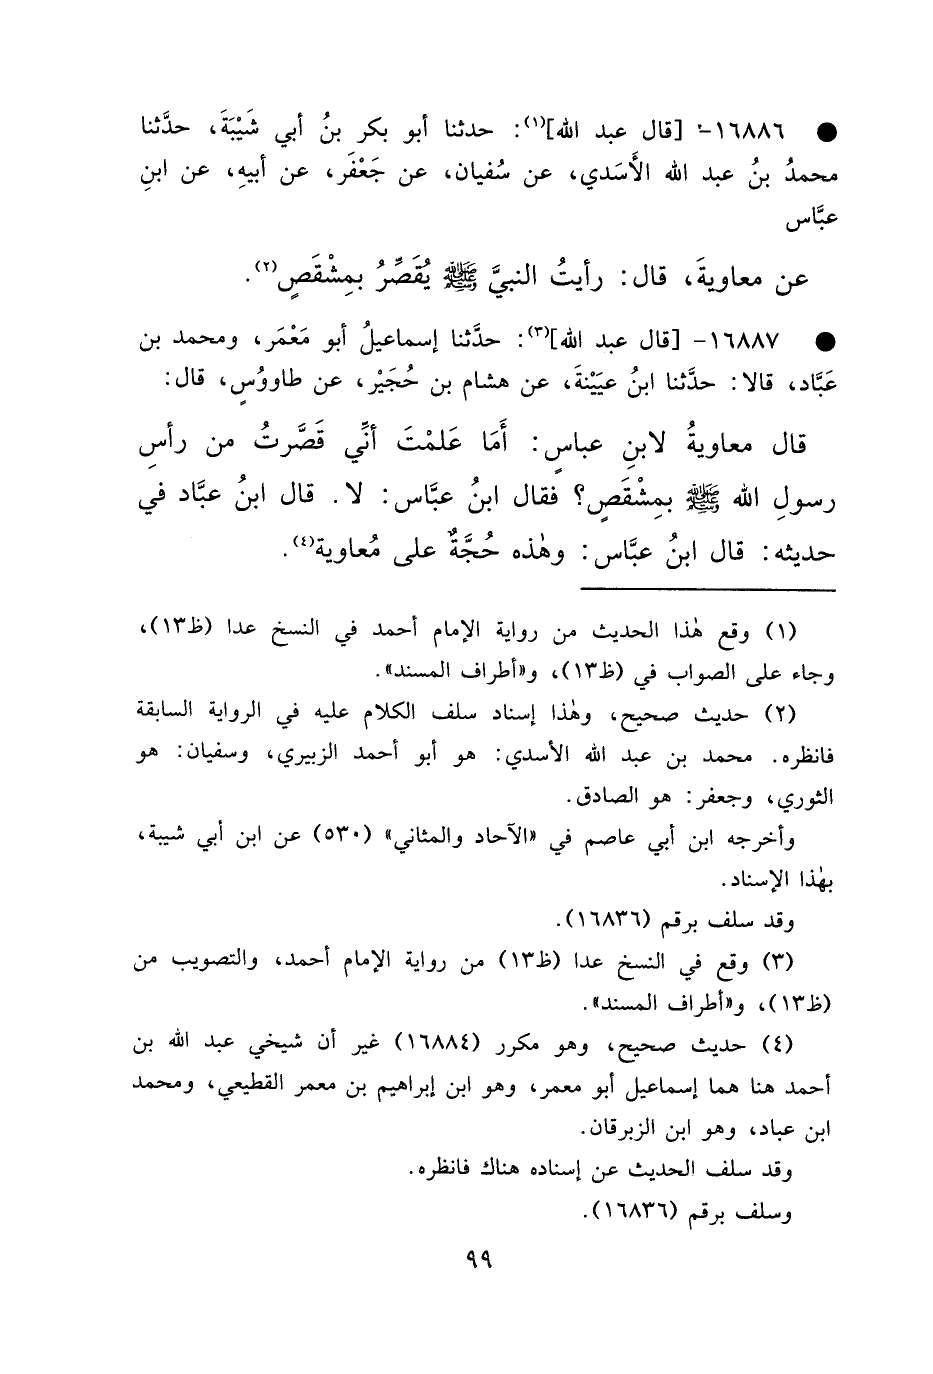 ● ١٦٨٨٦- [قال عبد الله](١): حدثنا أبو بكر بنُ أبي شَيْبَةَ، حدَّثنا
محمدُ بنُ عبد الله الأَسَدي، عن سُفيان، عن جَعْفَر، عن أبيهِ، عن ابنِ
عبَّاس
عن معاويةَ، قال: رأيتُ النبيَّ ﷺ يُقَصِّرُ بمِشْقَصٍ(٢).
● ١٦٨٨٧- [قال عبد الله](٣): حدَّثنا إسماعيلُ أبو مَعْمَر، ومحمد بن
عَبَّاد، قالا: حدَّثنا ابنُ عيَيْنةَ، عن هشام بن حُجَيْر، عن طاووُس، قال:
قال معاويةُ لابنِ عباسٍ: أَمَا عَلمْتَ أنِّي قَصَّرتُ من رأسِ
رسولِ الله ﷺ بمِشْقَصٍ؟ فقال ابنُ عبَّاس: لا. قال ابنُ عبَّاد في
حديثه: قال ابنُ عبَّاس: وهٰذه حُجَّةٌ على مُعاوية(٤).
(١) وقع هٰذا الحديث من رواية الإمام أحمد في النسخ عدا (ظ١٣)،
وجاء على الصواب في (ظ١٣)، و«أطراف المسند».
(٢) حديث صحيح، وهٰذا إسناد سلف الكلام عليه في الرواية السابقة
فانظره. محمد بن عبد الله الأسدي: هو أبو أحمد الزبيري، وسفيان: هو
الثوري، وجعفر: هو الصادق.
وأخرجه ابن أبي عاصم في «الآحاد والمثاني» (٥٣٠) عن ابن أبي شيبة،
بهٰذا الإسناد.
وقد سلف برقم (١٦٨٣٦).
(٣) وقع في النسخ عدا (ظ١٣) من رواية الإمام أحمد، والتصويب من
(ظ١٣)، و«أطراف المسند».
(٤) حديث صحيح، وهو مكرر (١٦٨٨٤) غير أن شيخي عبد الله بن
أحمد هنا هما إسماعيل أبو معمر، وهو ابن إبراهيم بن معمر القطيعي، ومحمد
ابن عباد، وهو ابن الزبرقان.
وقد سلف الحديث عن إسناده هناك فانظره.
وسلف برقم (١٦٨٣٦).
٩٩